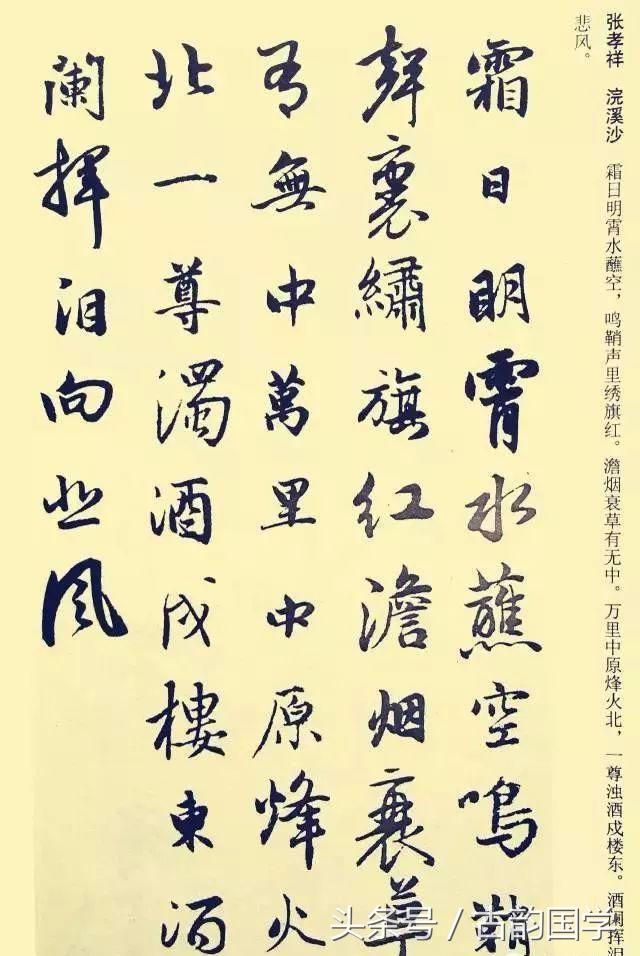 张孝祥 浣溪沙 霜日明霄水蘸空，鸣鞘声里绣旗红。澹烟衰草有无中。万里中原烽火北，一尊浊酒戍楼东。酒阑挥泪
悲风。
霜日明霄水蘸空鳴鞘
聲裏繡旗红澹烟衰草
有無中萬里中原烽火
北一尊濁酒戍樓東酒
闌揮泪向悲風
头条号 / 古韵国学